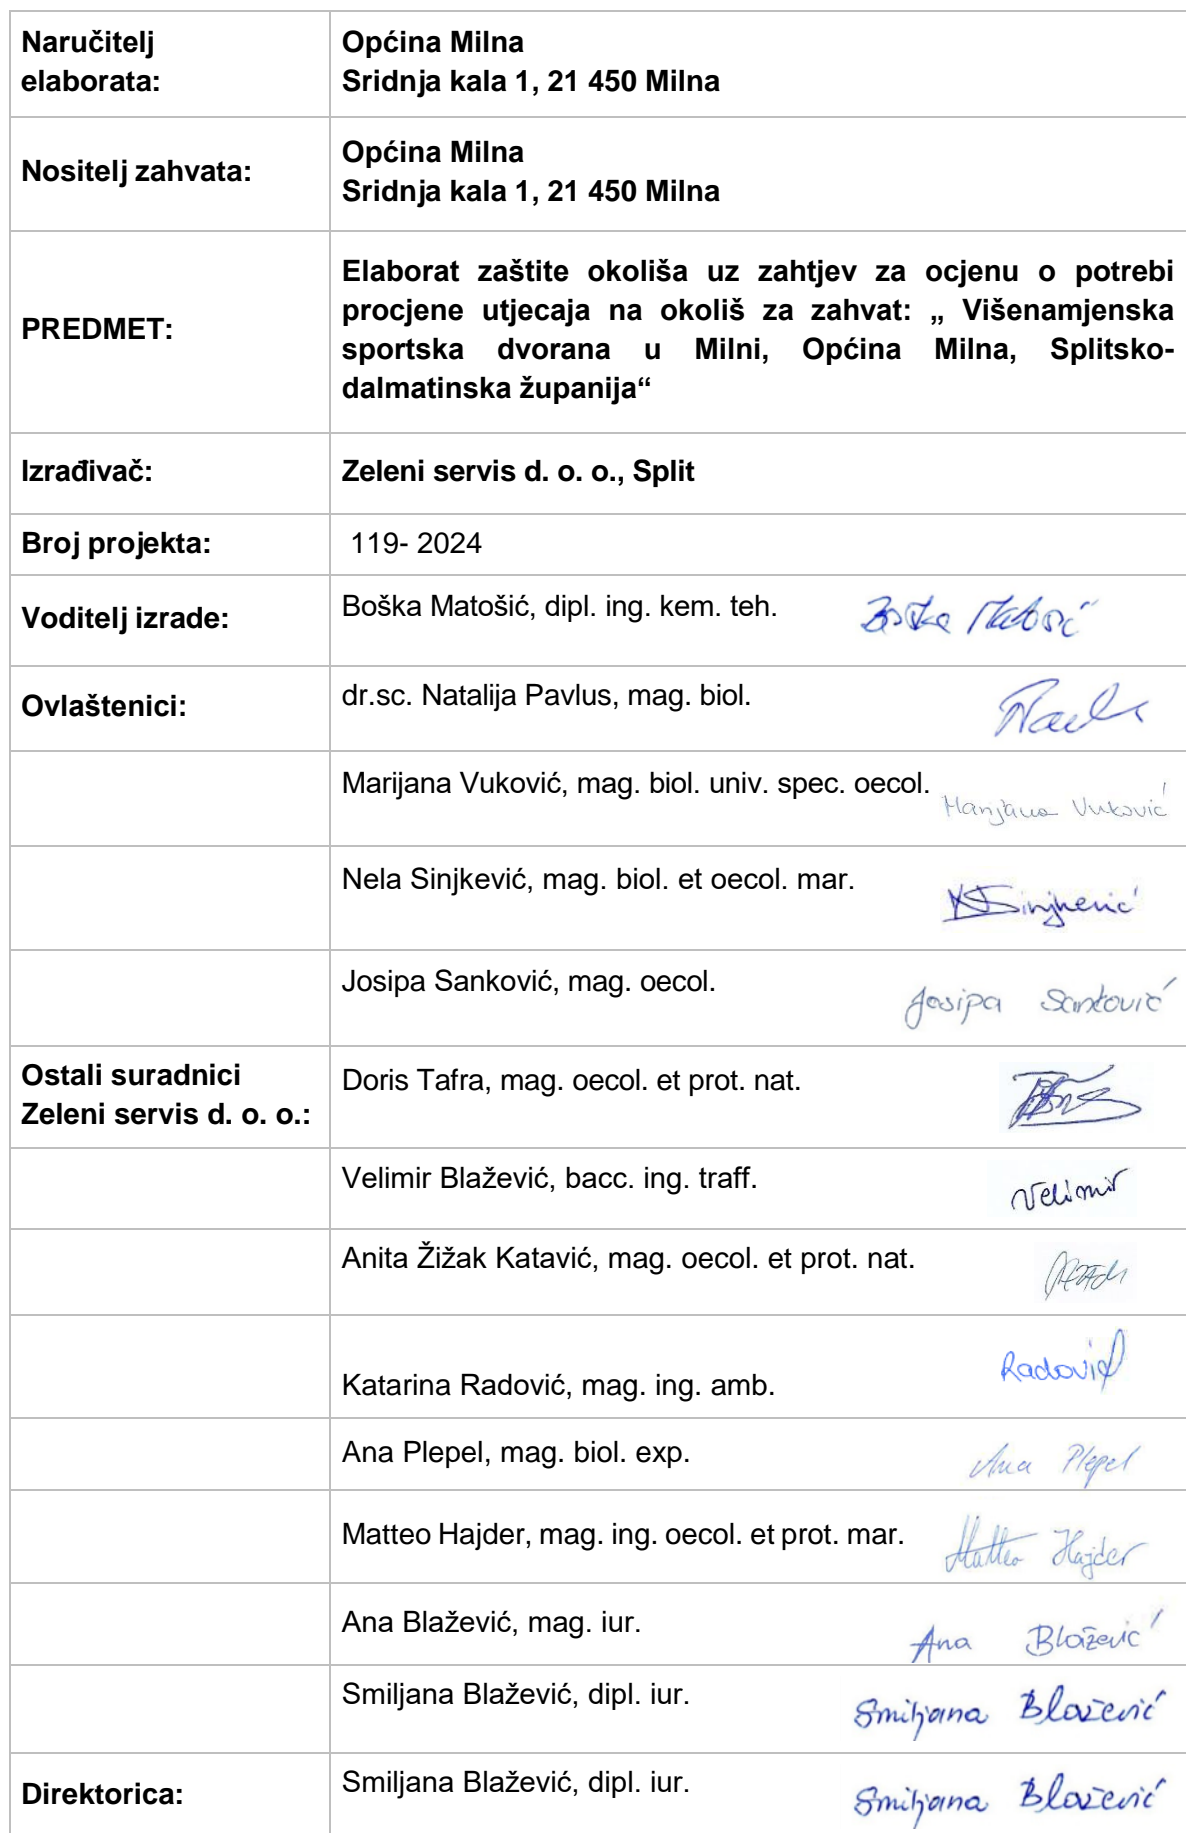 Naručitelj
elaborata:
Općina Milna
Sridnja kala 1, 21 450 Milna
Nositelj zahvata:
Općina Milna
Sridnja kala 1, 21 450 Milna
PREDMET:
Elaborat zaštite okoliša uz zahtjev za ocjenu o potrebi
procjene utjecaja na okoliš za zahvat: „ Višenamjenska
sportska dvorana u Milni, Općina Milna, Splitsko-
dalmatinska županija“
Izrađivač:
Zeleni servis d. o. o., Split
Broj projekta:
119- 2024
Voditelj izrade:
Boška Matošić, dipl. ing. kem. teh.
Boška Matošić
Ovlaštenici:
dr.sc. Natalija Pavlus, mag. biol.
Marijana Vuković, mag. biol. univ. spec. oecol.
Marijana Vuković
Nela Sinjkević, mag. biol. et oecol. mar.
NSinjkević
Josipa Sanković, mag. oecol.
Josipa Sanković
Ostali suradnici
Zeleni servis d. o. o.:
Doris Tafra, mag. oecol. et prot. nat.
Velimir Blažević, bacc. ing. traff.
Velimir
Anita Žižak Katavić, mag. oecol. et prot. nat.
Katarina Radović, mag. ing. amb.
Radović
Ana Plepel, mag. biol. exp.
Ana Plepel
Matteo Hajder, mag. ing. oecol. et prot. mar.
Matteo Hajder
Ana Blažević, mag. iur.
Ana Blažević
Smiljana Blažević, dipl. iur.
Smiljana Blažević
Direktorica:
Smiljana Blažević, dipl. iur.
Smiljana Blažević